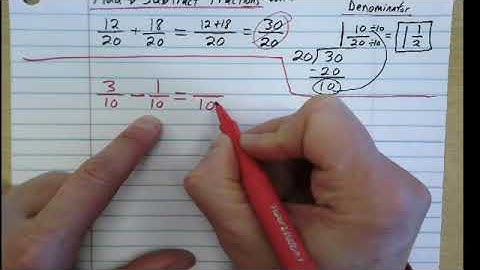 Add & Subtract Fractions
Denominator
12/20 + 18/20 = (12+18)/20 = 30/20
1 10/20 ÷10/÷10 = 1 1/2
20)30
-20
10
3/10 - 1/10 = /10